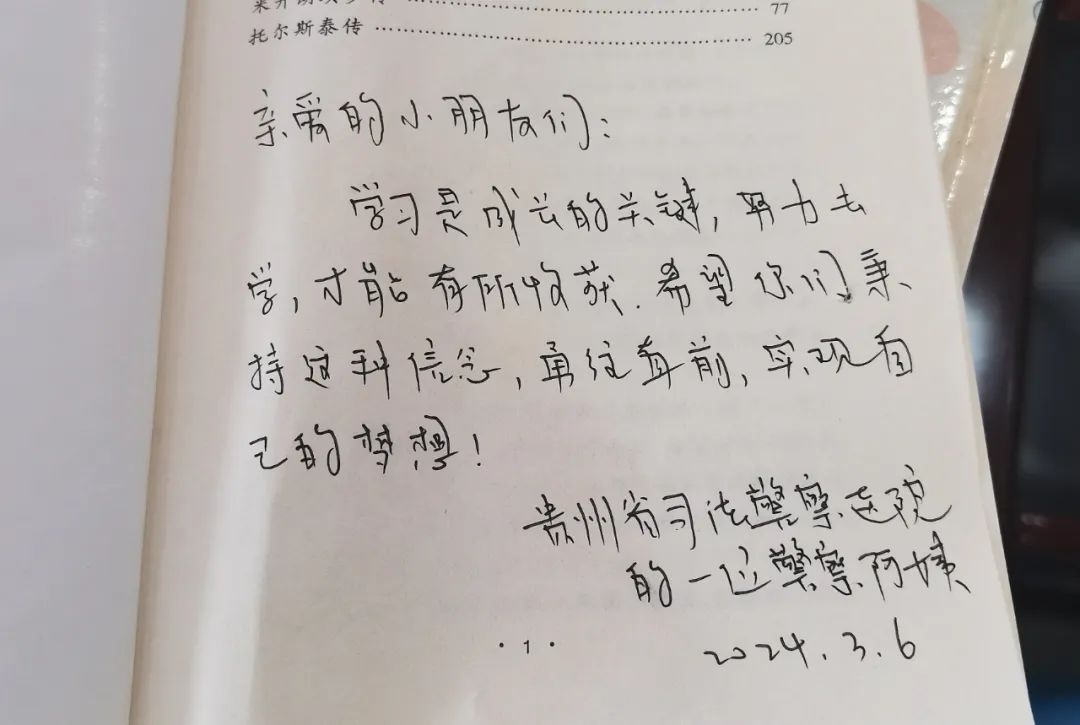 77
托尔斯泰传 205
亲爱的小朋友们：
学习是成长的关键，努力去
学，才能有所收获.希望你们秉
持这种信念，勇往直前，实现自
己的梦想！
贵州省司法警察医院
的一位警察阿姨
2024.3.6
·1·